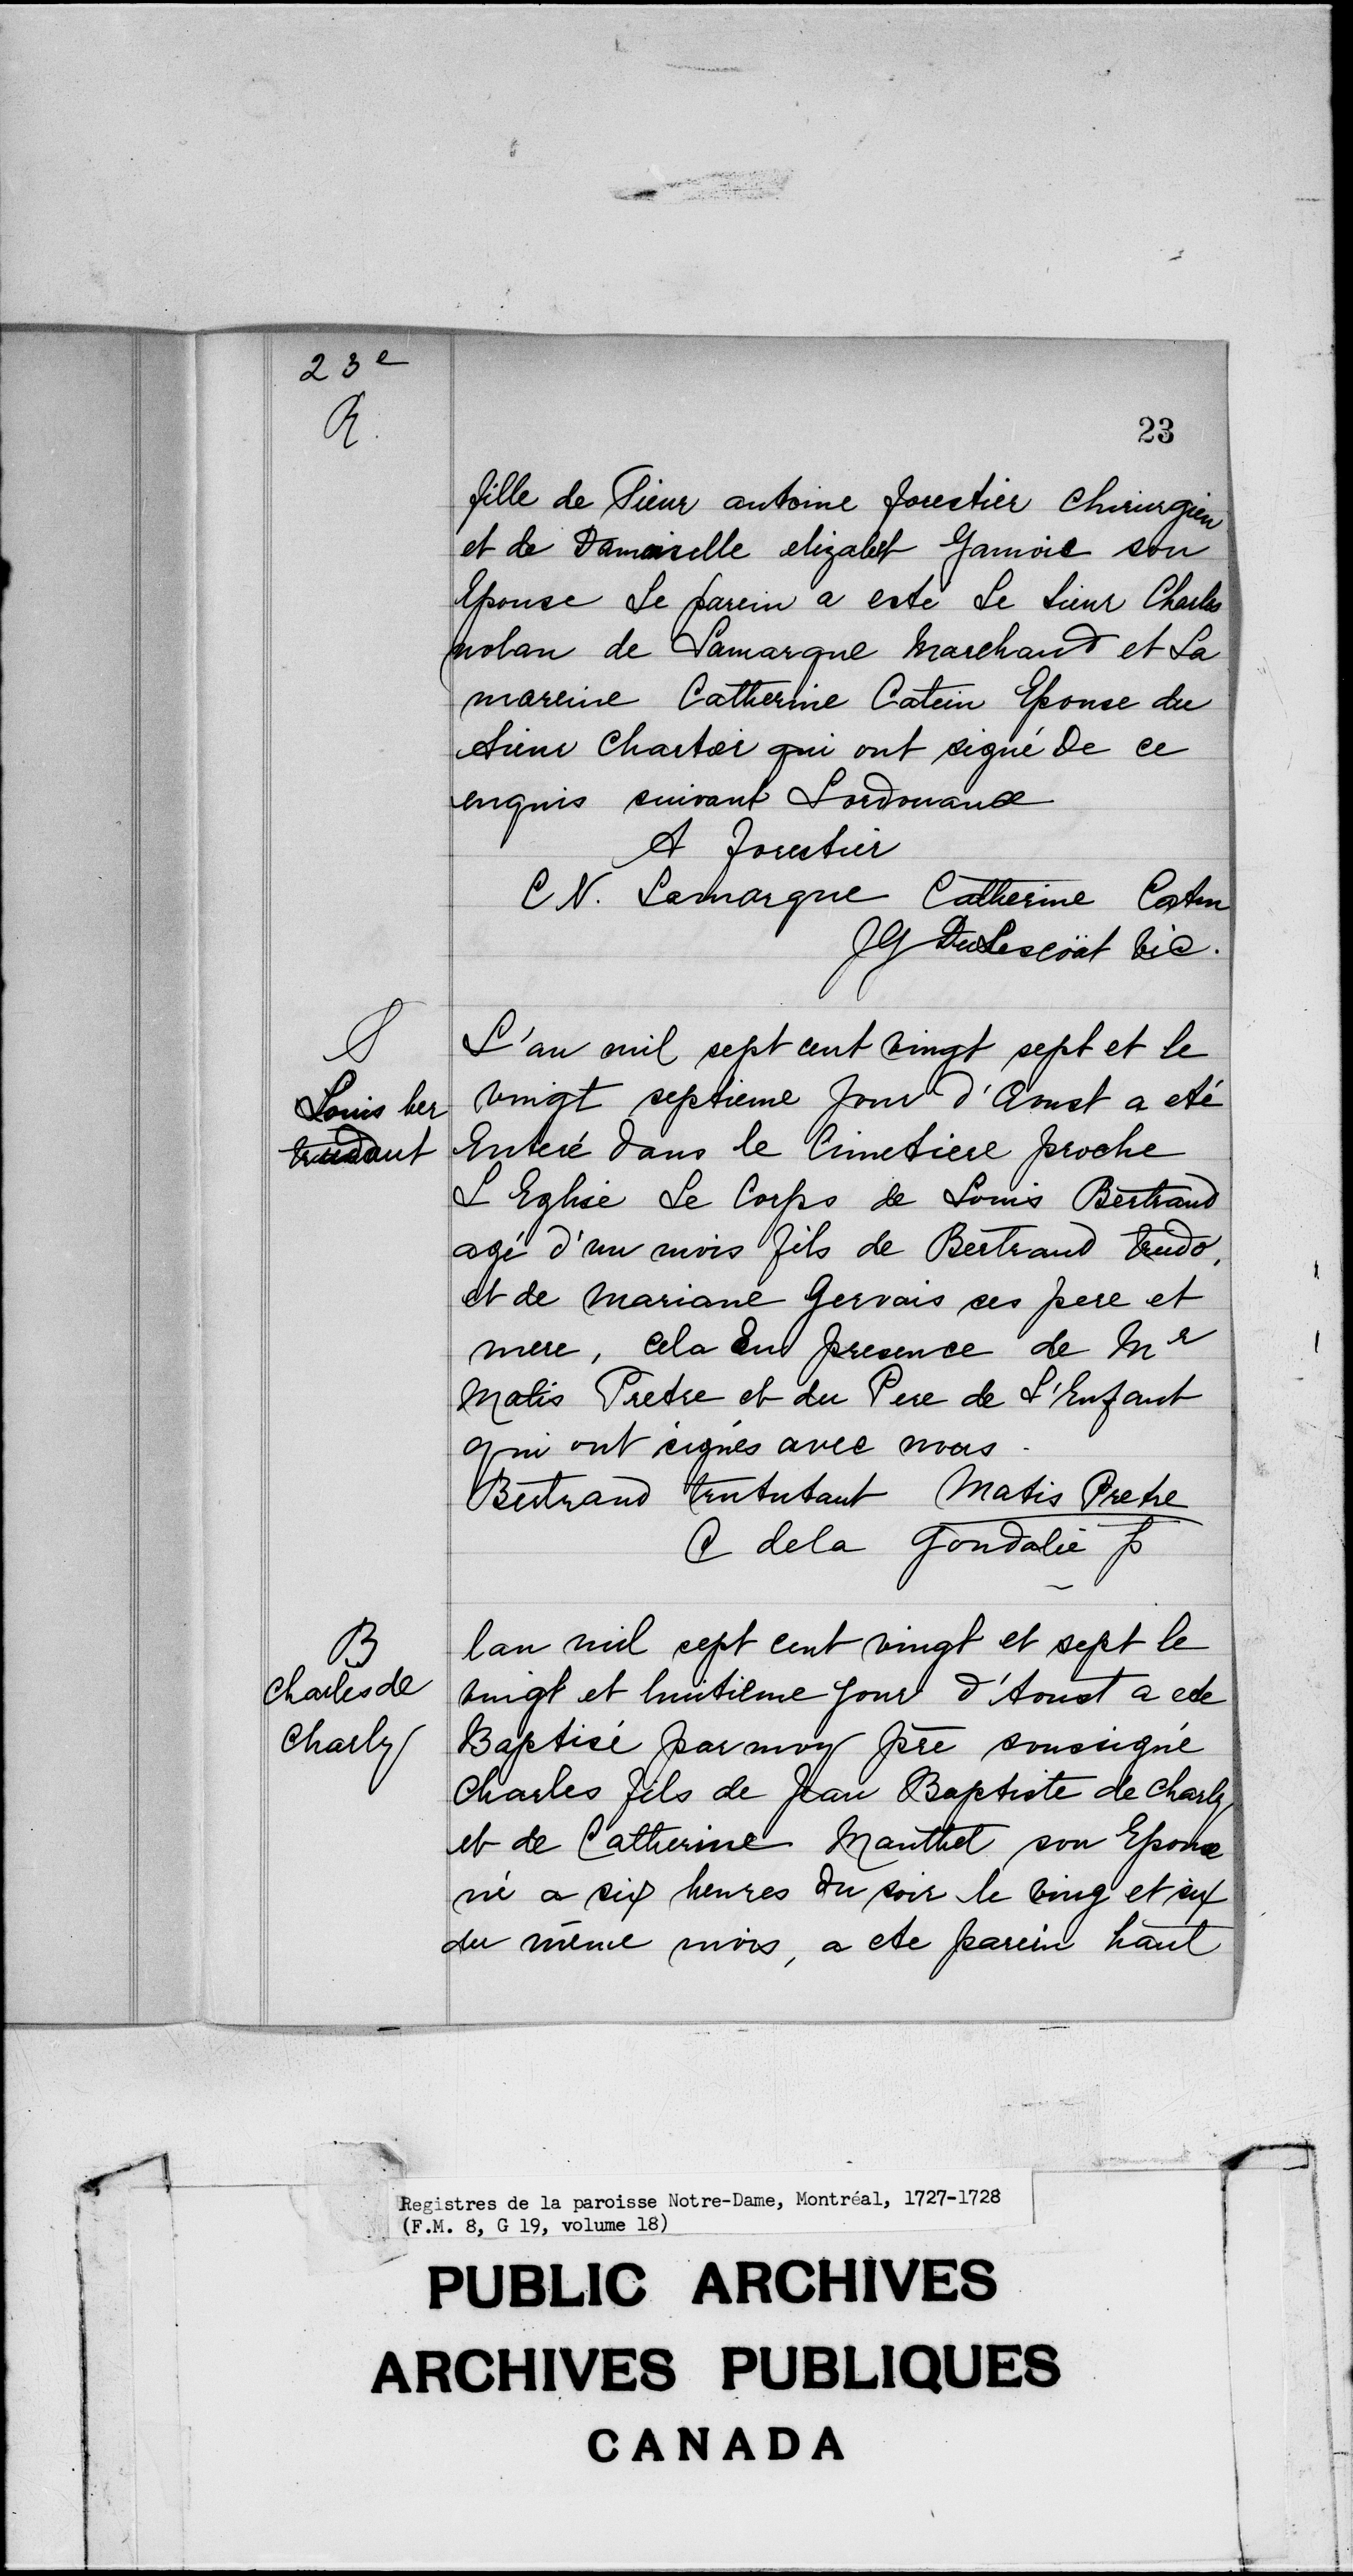 23e
R.
23
fille de Sieur antoine forestier Chirurgien
et de Damoiselle elizabet Gamoie son
Epouse Le parein a este Le sieur Charles
nolan de Lamarque Marchand et La
mareine Catherine Catein Epouse du
sieur Chartier qui ont signé De ce
enquis suivant Lordonance
A forestier
C N. Lamarque Catherine Catin
JG DuLescöat Vic.
S
Louis ber
trudaut
L'an mil sept cent vingt sept et le
vingt septieme Jour d'Aoust a eté
Enteré dans le Cimetiere proche
L Eglise Le Corps de Louis Bertrand
agé d'un mois fils de Bertrand trudo,
et de Mariane Gervais ses pere et
mere, cela En presence de Mr
Matis Pretre et du Pere de L'Enfant
qui ont signés avec nous.
Bertrand trututaut Matis Pretre
C dela Goudalie p
B
Charles de
Charly
lan mil sept cent vingt et sept le
vingt et huitieme jour d'Aoust a ete
Baptisé par moy pre soussigné
Charles fils de Jean Baptiste de Charly
et de Catherine Manthet son Epouse
né a six heures du soir le ving et six
du même mois, a ete parein haut
Registres de la paroisse Notre-Dame, Montréal, 1727-1728
(F.M. 8, G 19, volume 18)
PUBLIC ARCHIVES
ARCHIVES PUBLIQUES
CANADA